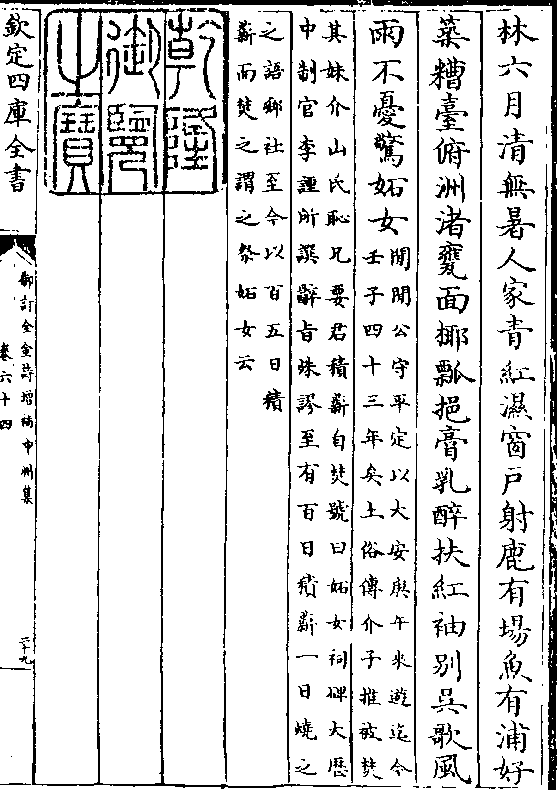 林六月清無暑人家青紅濕窗戸射鹿有場魚有浦好
築糟臺俯洲渚甕面椰瓢挹膏乳醉扶紅袖别呉歌風
雨不憂驚妬女
閒閒公守平定以大安庚午來遊迄今
壬子四十三年矣土俗傳介子推被焚
其妹介山氏恥兄要君積薪自焚號曰妬女祠碑大歴
中判官李諲所撰辭旨殊謬至有百日積薪一日燒之
之語鄉社至今以百五日積
薪而焚之謂之祭妬女云
乾隆
御覽
之寶
欽定四庫全書
御訂全金詩增補中州集
卷六十四
二十九